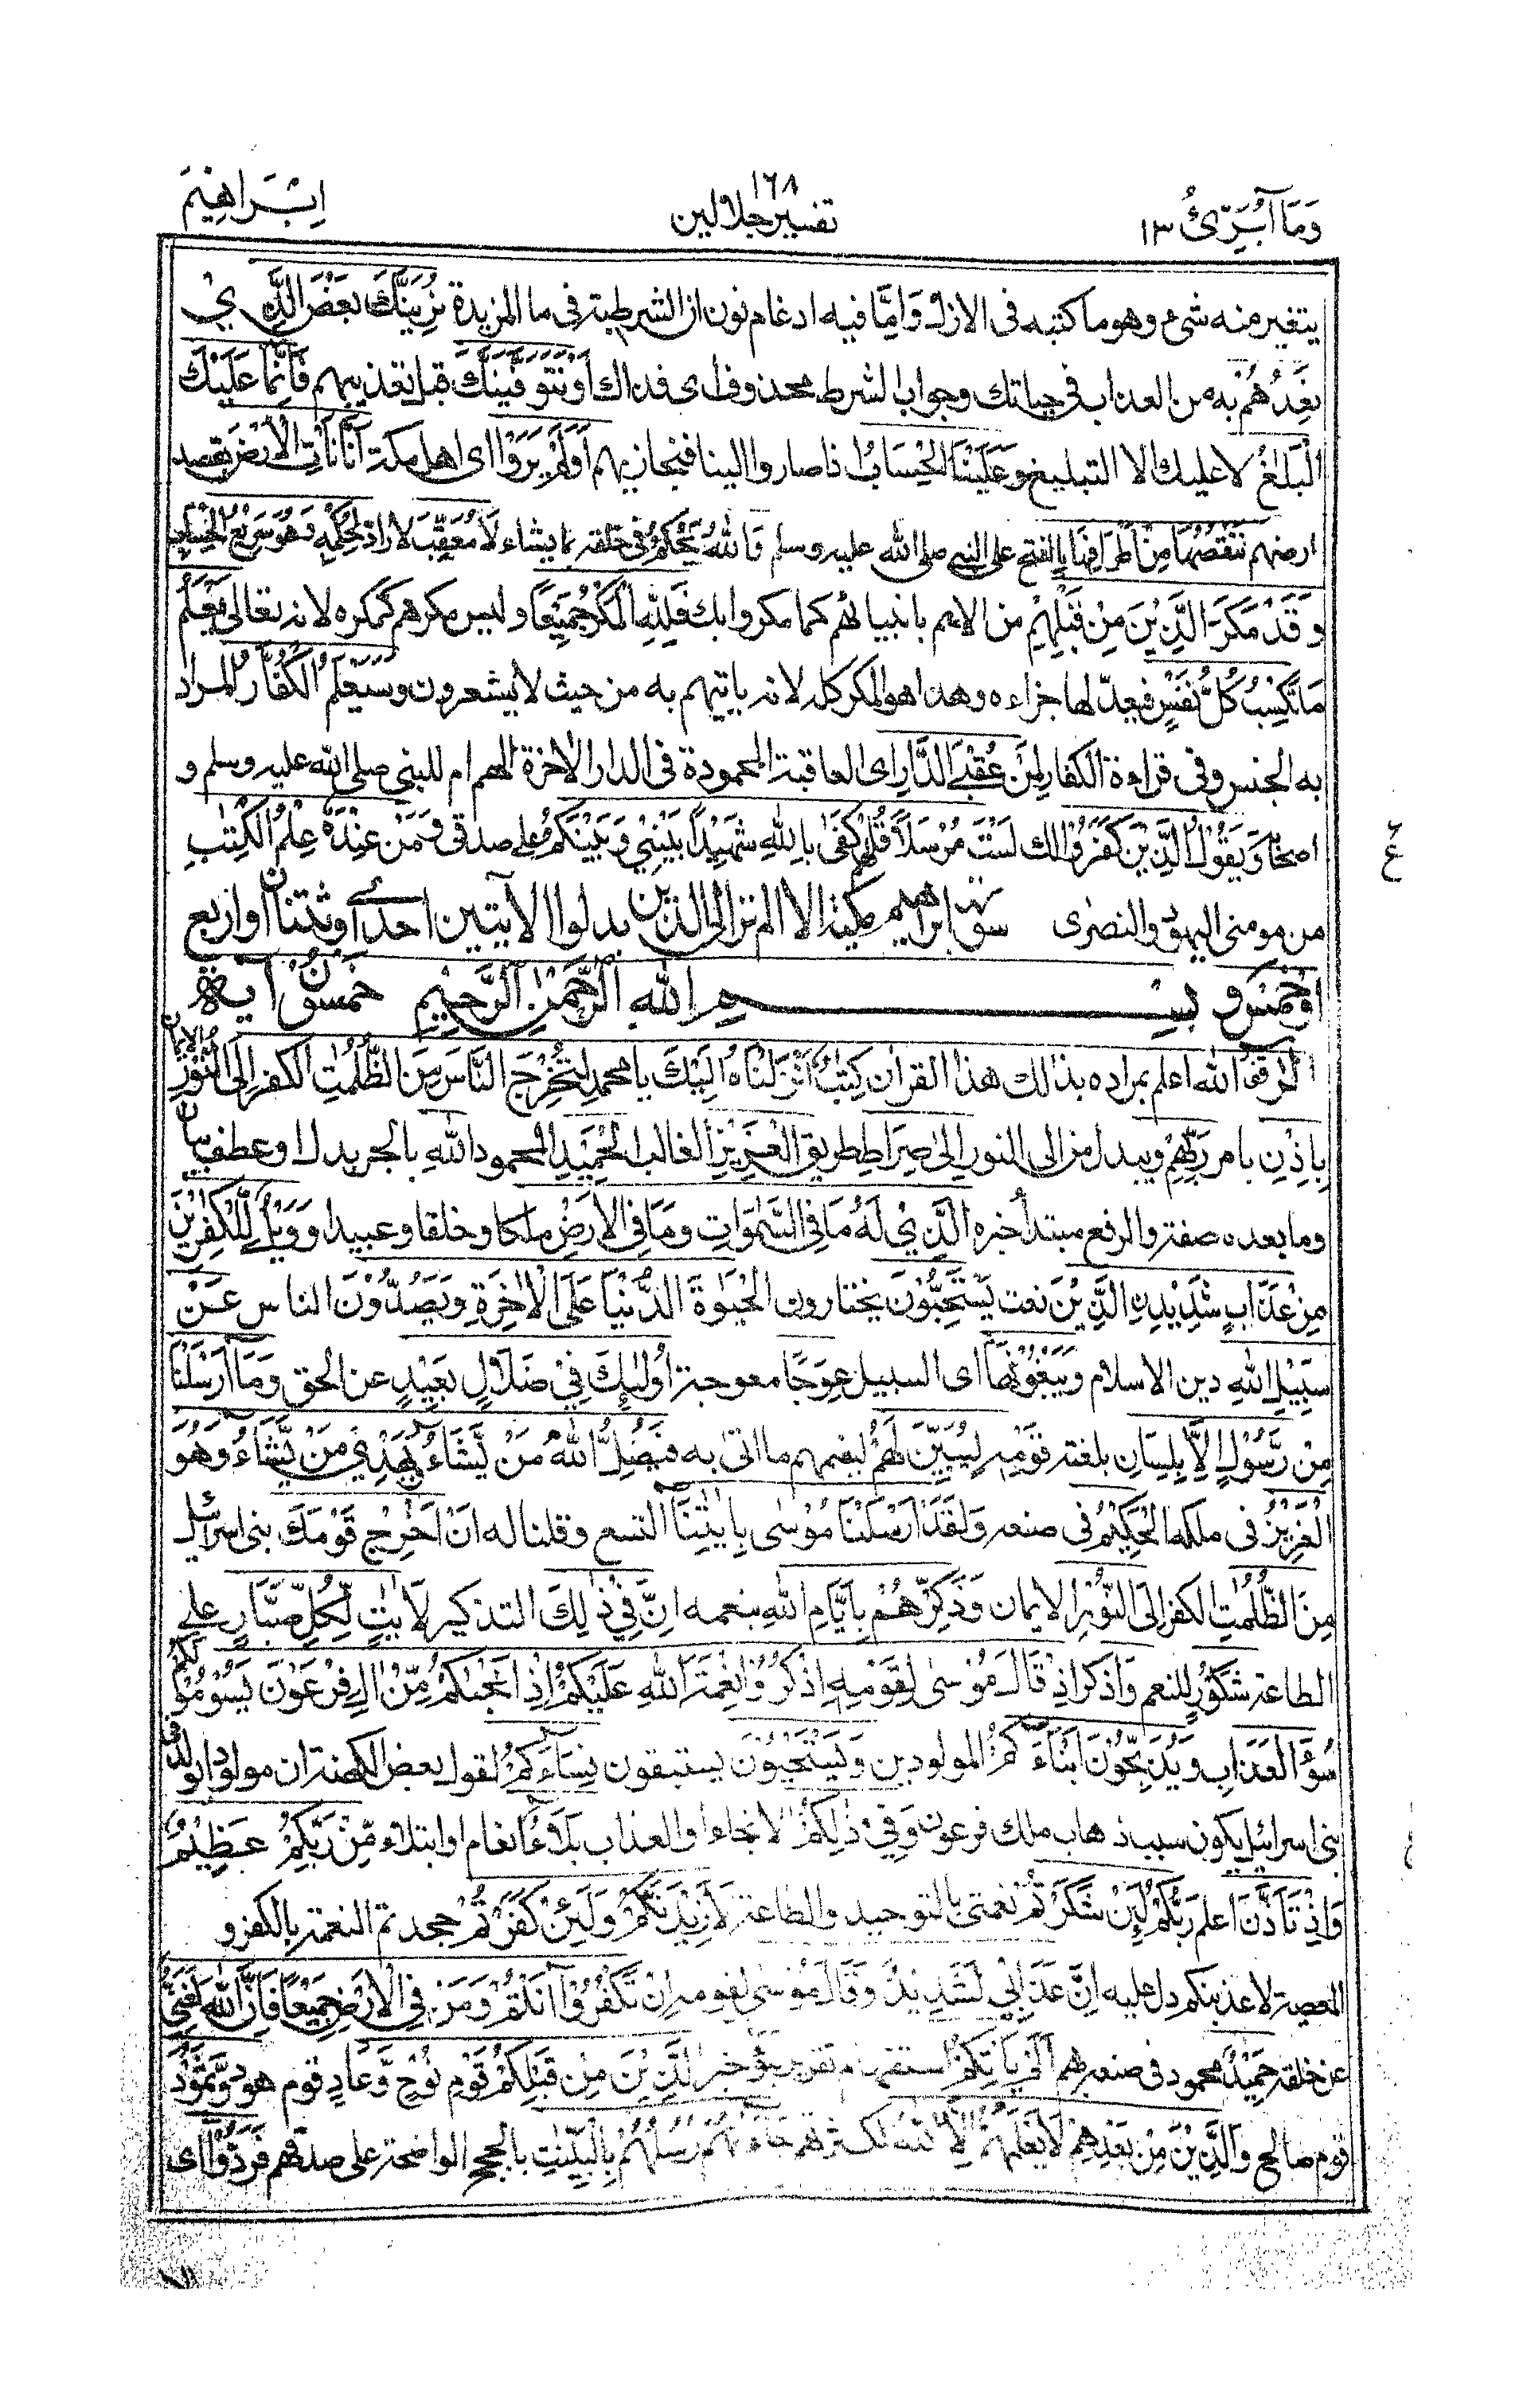 وَمَآ اُبَرِّئُ ١٣
١٦٨
تفسیر جلالین
اِبْرَاهِيْم
يتغير منه شيء وهو ما كتبه في الازل وَاِمَّا فيه ادغام نون ان الشرطية في ما المزيدة نُرِيَنَّكَ بَعْضَ الَّذِيْ
نَعِدُهُمْ به من العذاب في حياتك وجواب الشرط محذوف اى فذاك اَوْ نَتَوَفَّيَنَّكَ قبل تعذيبهم فَاِنَّمَا عَلَيْكَ
الْبَلٰغُ لا عليك الا التبليغ وَعَلَيْنَا الْحِسَابُ اذا صاروا الينا فنجازيهم اَوَلَمْ يَرَوْا اى اهل مكة اَنَّا نَاْتِى الْاَرْضَ نقصد
ارضهم نَنْقُصُهَا مِنْ اَطْرَافِهَا بالفتح على النبي صلى الله عليه وسلم وَاللّٰهُ يَحْكُمُ في خلقه بما يشاء لَا مُعَقِّبَ لا راد لِحُكْمِهٖ وَهُوَ سَرِيْعُ الْحِسَابِ
وَقَدْ مَكَرَ الَّذِيْنَ مِنْ قَبْلِهِمْ من الامم بانبيائهم كما مكروا بك فَلِلّٰهِ الْمَكْرُ جَمِيْعًا وليس مكرهم كمكره لانه تعالى يَعْلَمُ
مَا تَكْسِبُ كُلُّ نَفْسٍ فيعد لها جزاءه وهذا هو المكر كله لانه ياتيهم به من حيث لا يشعرون وَسَيَعْلَمُ الْكُفّٰرُ المراد
به الجنس وفي قراءة الكفار لِمَنْ عُقْبَى الدَّارِ اى العاقبة المحمودة في الدار الاخرة الهم ام للنبي صلى الله عليه وسلم و
اصحابه وَيَقُوْلُ الَّذِيْنَ كَفَرُوْا لك لَسْتَ مُرْسَلًا قُلْ لهم كَفٰى بِاللّٰهِ شَهِيْدًا بَيْنِيْ وَبَيْنَكُمْ على صدقى وَمَنْ عِنْدَهٗ عِلْمُ الْكِتٰبِ
ع
من مومنى اليهود والنصرى سورة ابراهيم مكية الا الم تر الى الذين بدلوا الايتين احدى او ثنتان او اربع
او خمس و بِسْمِ اللّٰهِ الرَّحْمٰنِ الرَّحِيْمِ خمسون اية
الٓرٰ الله اعلم بمراده بذالك هذا القران كِتٰبٌ اَنْزَلْنٰهُ اِلَيْكَ يا محمد لِتُخْرِجَ النَّاسَ مِنَ الظُّلُمٰتِ الكفر اِلَى النُّوْرِ الايمان
بِاِذْنِ بامر رَبِّهِمْ ويبدل من الى النور اِلٰى صِرَاطِ طريق الْعَزِيْزِ الغالب الْحَمِيْدِ المحمود اللّٰهِ بالجر بدل او عطف بيان
وما بعده صفة والرفع مبتدأ خبره الَّذِيْ لَهٗ مَا فِى السَّمٰوٰتِ وَمَا فِى الْاَرْضِ ملكا وخلقا وعبيدا وَوَيْلٌ لِّلْكٰفِرِيْنَ
مِنْ عَذَابٍ شَدِيْدِ ۨ الَّذِيْنَ نعت يَسْتَحِبُّوْنَ يختارون الْحَيٰوةَ الدُّنْيَا عَلَى الْاٰخِرَةِ وَيَصُدُّوْنَ الناس عَنْ
سَبِيْلِ اللّٰهِ دين الاسلام وَيَبْغُوْنَهَا اى السبيل عِوَجًا معوجة اُولٰٓئِكَ فِيْ ضَلٰلٍۭ بَعِيْدٍ عن الحق وَمَآ اَرْسَلْنَا
مِنْ رَّسُوْلٍ اِلَّا بِلِسَانِ بلغة قَوْمِهٖ لِيُبَيِّنَ لَهُمْ ليفهمهم ما اتى به فَيُضِلُّ اللّٰهُ مَنْ يَّشَآءُ وَيَهْدِيْ مَنْ يَّشَآءُ وَهُوَ
الْعَزِيْزُ في ملكه الْحَكِيْمُ في صنعه وَلَقَدْ اَرْسَلْنَا مُوْسٰى بِاٰيٰتِنَآ التسع وقلنا له اَنْ اَخْرِجْ قَوْمَكَ بنى اسرائيل
مِنَ الظُّلُمٰتِ الكفر اِلَى النُّوْرِ الايمان وَذَكِّرْهُمْ بِاَيّٰمِ اللّٰهِ بنعمه اِنَّ فِيْ ذٰلِكَ التذكير لَاٰيٰتٍ لِّكُلِّ صَبَّارٍ على
الطاعة شَكُوْرٍ للنعم وَاذكر اِذْ قَالَ مُوْسٰى لِقَوْمِهِ اذْكُرُوْا نِعْمَةَ اللّٰهِ عَلَيْكُمْ اِذْ اَنْجٰىكُمْ مِّنْ اٰلِ فِرْعَوْنَ يَسُوْمُوْنَكُمْ
سُوْٓءَ الْعَذَابِ وَيُذَبِّحُوْنَ اَبْنَآءَكُمْ المولودين وَيَسْتَحْيُوْنَ يستبقون نِسَآءَكُمْ لقول بعض الكهنة ان مولودا يولد في
بنى اسرائيل يكون سبب ذهاب ملك فرعون وَفِيْ ذٰلِكُمْ الانجاء او العذاب بَلَآءٌ انعام او ابتلاء مِّنْ رَّبِّكُمْ عَظِيْمٌ
وَاِذْ تَاَذَّنَ اعلم رَبُّكُمْ لَئِنْ شَكَرْتُمْ نعمتى بالتوحيد والطاعة لَاَزِيْدَنَّكُمْ وَلَئِنْ كَفَرْتُمْ جحدتم النعمة بالكفر و
المعصية لاعذبنكم دل عليه اِنَّ عَذَابِيْ لَشَدِيْدٌ وَقَالَ مُوْسٰٓى لقومه اِنْ تَكْفُرُوْٓا اَنْتُمْ وَمَنْ فِى الْاَرْضِ جَمِيْعًا فَاِنَّ اللّٰهَ لَغَنِيٌّ
عن خلقه حَمِيْدٌ محمود في صنعه بهم اَلَمْ يَاْتِكُمْ استفهام تقرير نَبَؤُا خبر الَّذِيْنَ مِنْ قَبْلِكُمْ قَوْمِ نُوْحٍ وَّعَادٍ قوم هود وَّثَمُوْدَ
قوم صالح وَالَّذِيْنَ مِنْۢ بَعْدِهِمْ لَا يَعْلَمُهُمْ اِلَّا اللّٰهُ لكثرتهم جَآءَتْهُمْ رُسُلُهُمْ بِالْبَيِّنٰتِ بالحجج الواضحة على صدقهم فَرَدُّوْٓا اى